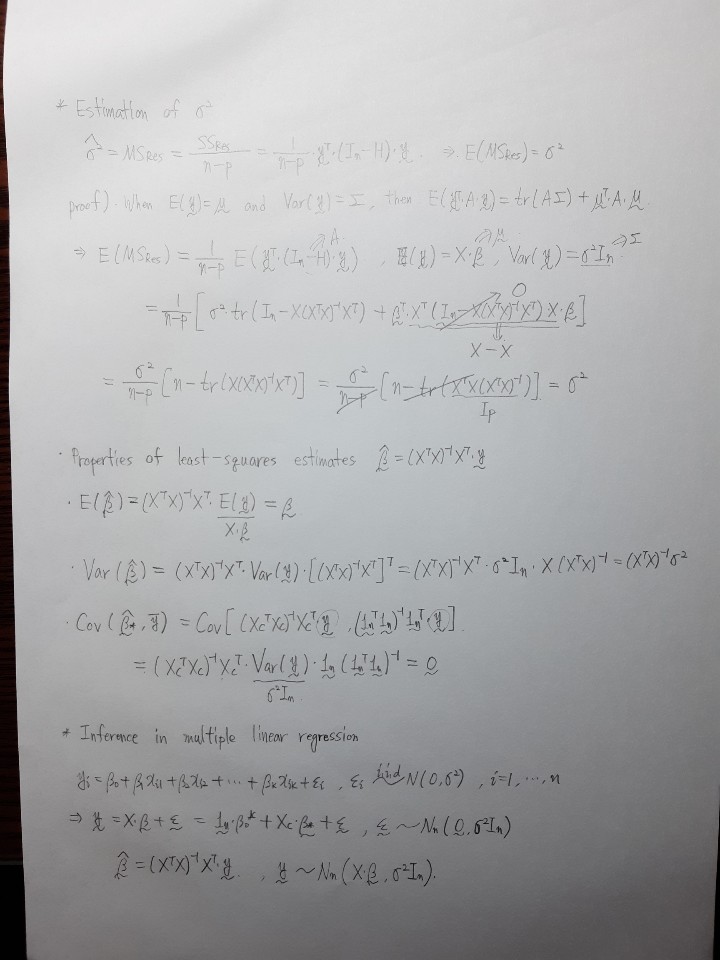 * Estimation of σ²
σ̂² = MS_Res = SS_Res/(n-p) = 1/(n-p) · y̰ᵀ·(Iₙ-H)·y̰. ⇒ E(MS_Res) = σ²
proof). When E(y̰)=μ̰ and Var(y̰)=Σ, then E(y̰ᵀ·A·y̰) = tr(AΣ) + μ̰ᵀ·A·μ̰.
⇒ E(MS_Res) = 1/(n-p) E(y̰ᵀ·(Iₙ-H)·y̰) , E(y̰) = X·β̰ , Var(y̰) = σ²Iₙ ⇒A ⇒μ̰ ⇒Σ
= 1/(n-p) [σ²·tr(Iₙ-X(XᵀX)⁻¹Xᵀ) + β̰ᵀ·Xᵀ(Iₙ-X(XᵀX)⁻¹Xᵀ)X·β̰] 0
⇓
X-X
= σ²/(n-p) [n-tr(X(XᵀX)⁻¹Xᵀ)] = σ²/(n-p) [n-tr(XᵀX(XᵀX)⁻¹)] = σ²
Iₚ
· Properties of least-squares estimates β̰̂ = (XᵀX)⁻¹Xᵀ·y̰
· E(β̰̂) = (XᵀX)⁻¹Xᵀ·E(y̰) = β̰
X·β̰
· Var(β̰̂) = (XᵀX)⁻¹Xᵀ·Var(y̰)·[(XᵀX)⁻¹Xᵀ]ᵀ = (XᵀX)⁻¹Xᵀ·σ²Iₙ·X(XᵀX)⁻¹ = (XᵀX)⁻¹σ²
· Cov(β̰̂*, ȳ) = Cov[(X_cᵀX_c)⁻¹X_cᵀ·y̰ , (1̰ₙᵀ1̰ₙ)⁻¹1̰ₙᵀ·y̰]
= (X_cᵀX_c)⁻¹X_cᵀ·Var(y̰)·1̰ₙ(1̰ₙᵀ1̰ₙ)⁻¹ = 0̰
σ²Iₙ
* Inference in multiple linear regression
yᵢ = β₀+β₁xᵢ₁+β₂xᵢ₂+ ··· +βₖxᵢₖ+εᵢ , εᵢ i.i.d ~ N(0,σ²) , i=1, ···, n
⇒ y̰ = X·β̰+ε̰ = 1̰ₙ·β₀*+X_c·β̰*+ε̰ , ε̰ ~ Nₙ(0̰, σ²Iₙ)
β̰̂ = (XᵀX)⁻¹Xᵀ·y̰. , y̰ ~ Nₙ(X·β̰, σ²Iₙ).